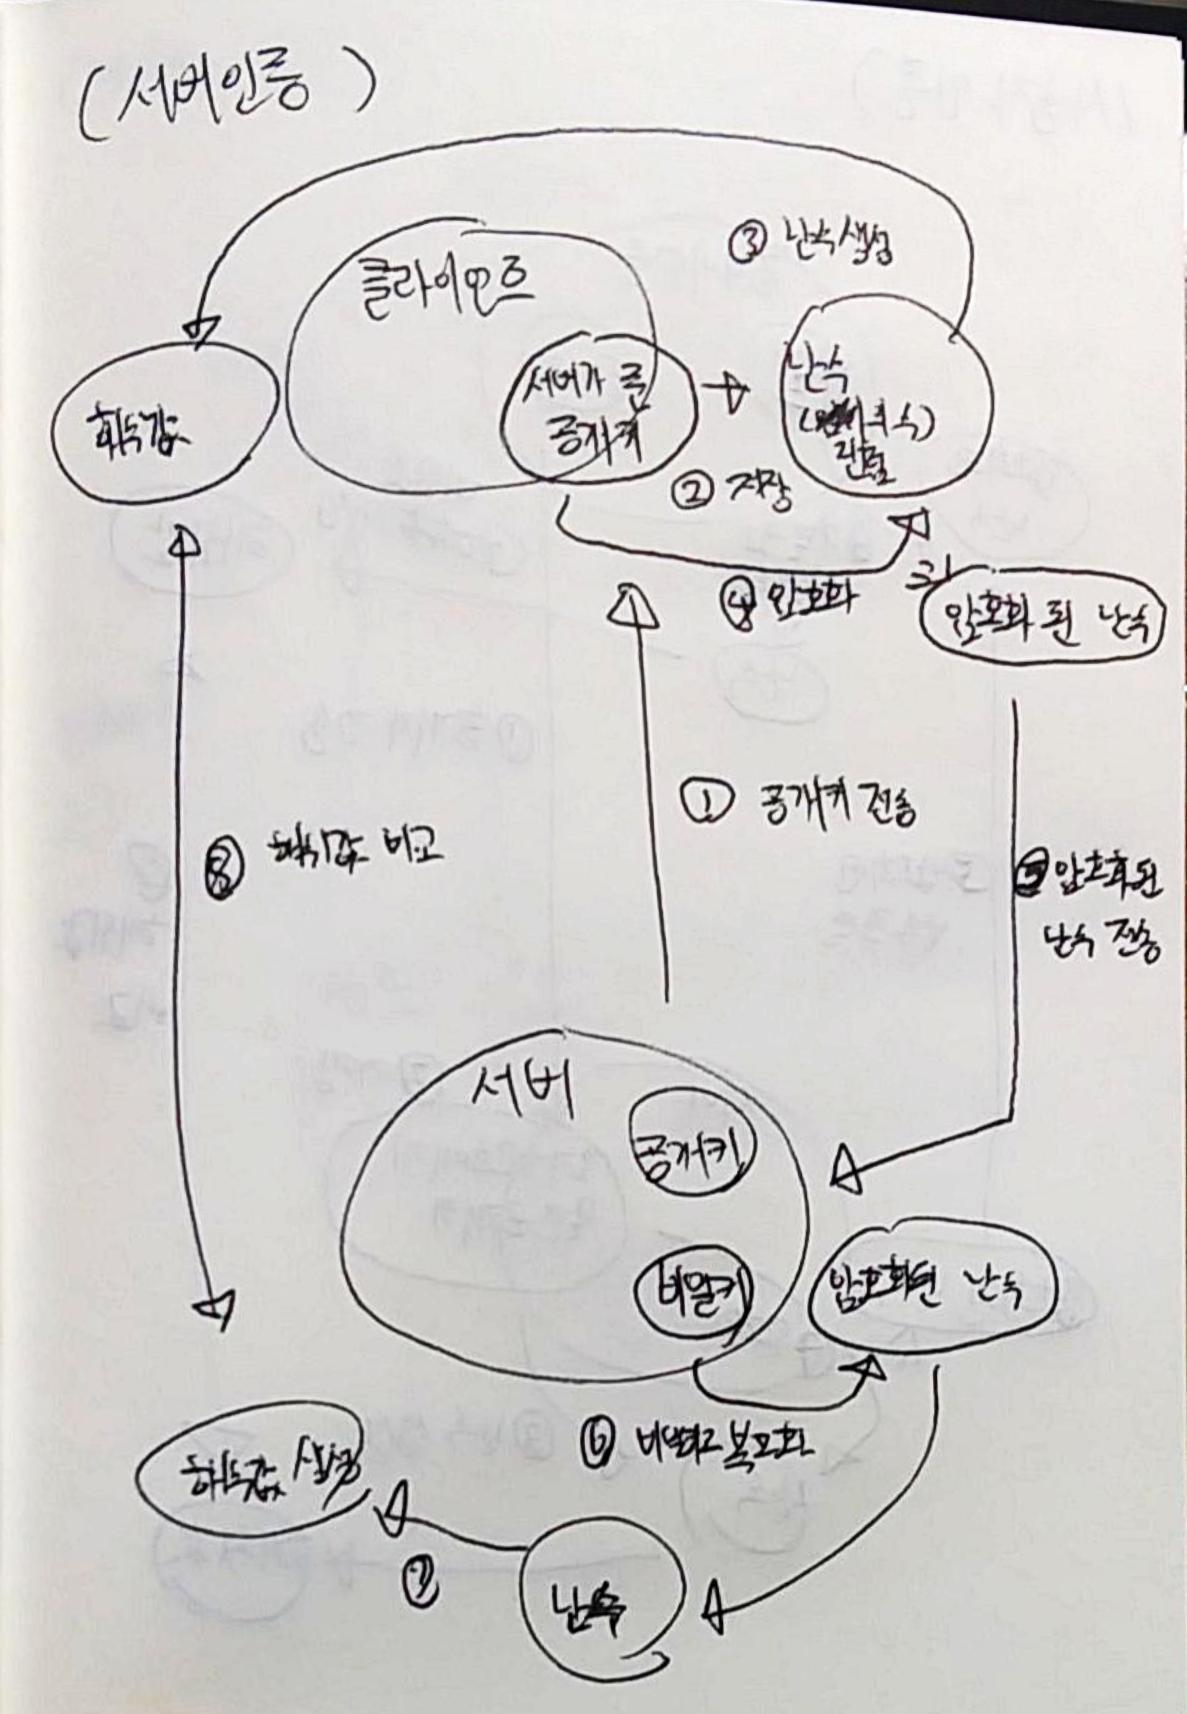 (서버인증)
③ 난수생성
클라이언트
서버가 준
공개키
난수
해쉬값
② 저장
④ 암호화
암호화 된 난수
① 공개키 전송
⑧ 해쉬값 비교
⑤ 암호화된
난수 전송
서버
공개키
비밀키
암호화된 난수
⑥ 비밀키로 복호화
해쉬값 생성
⑦
난수